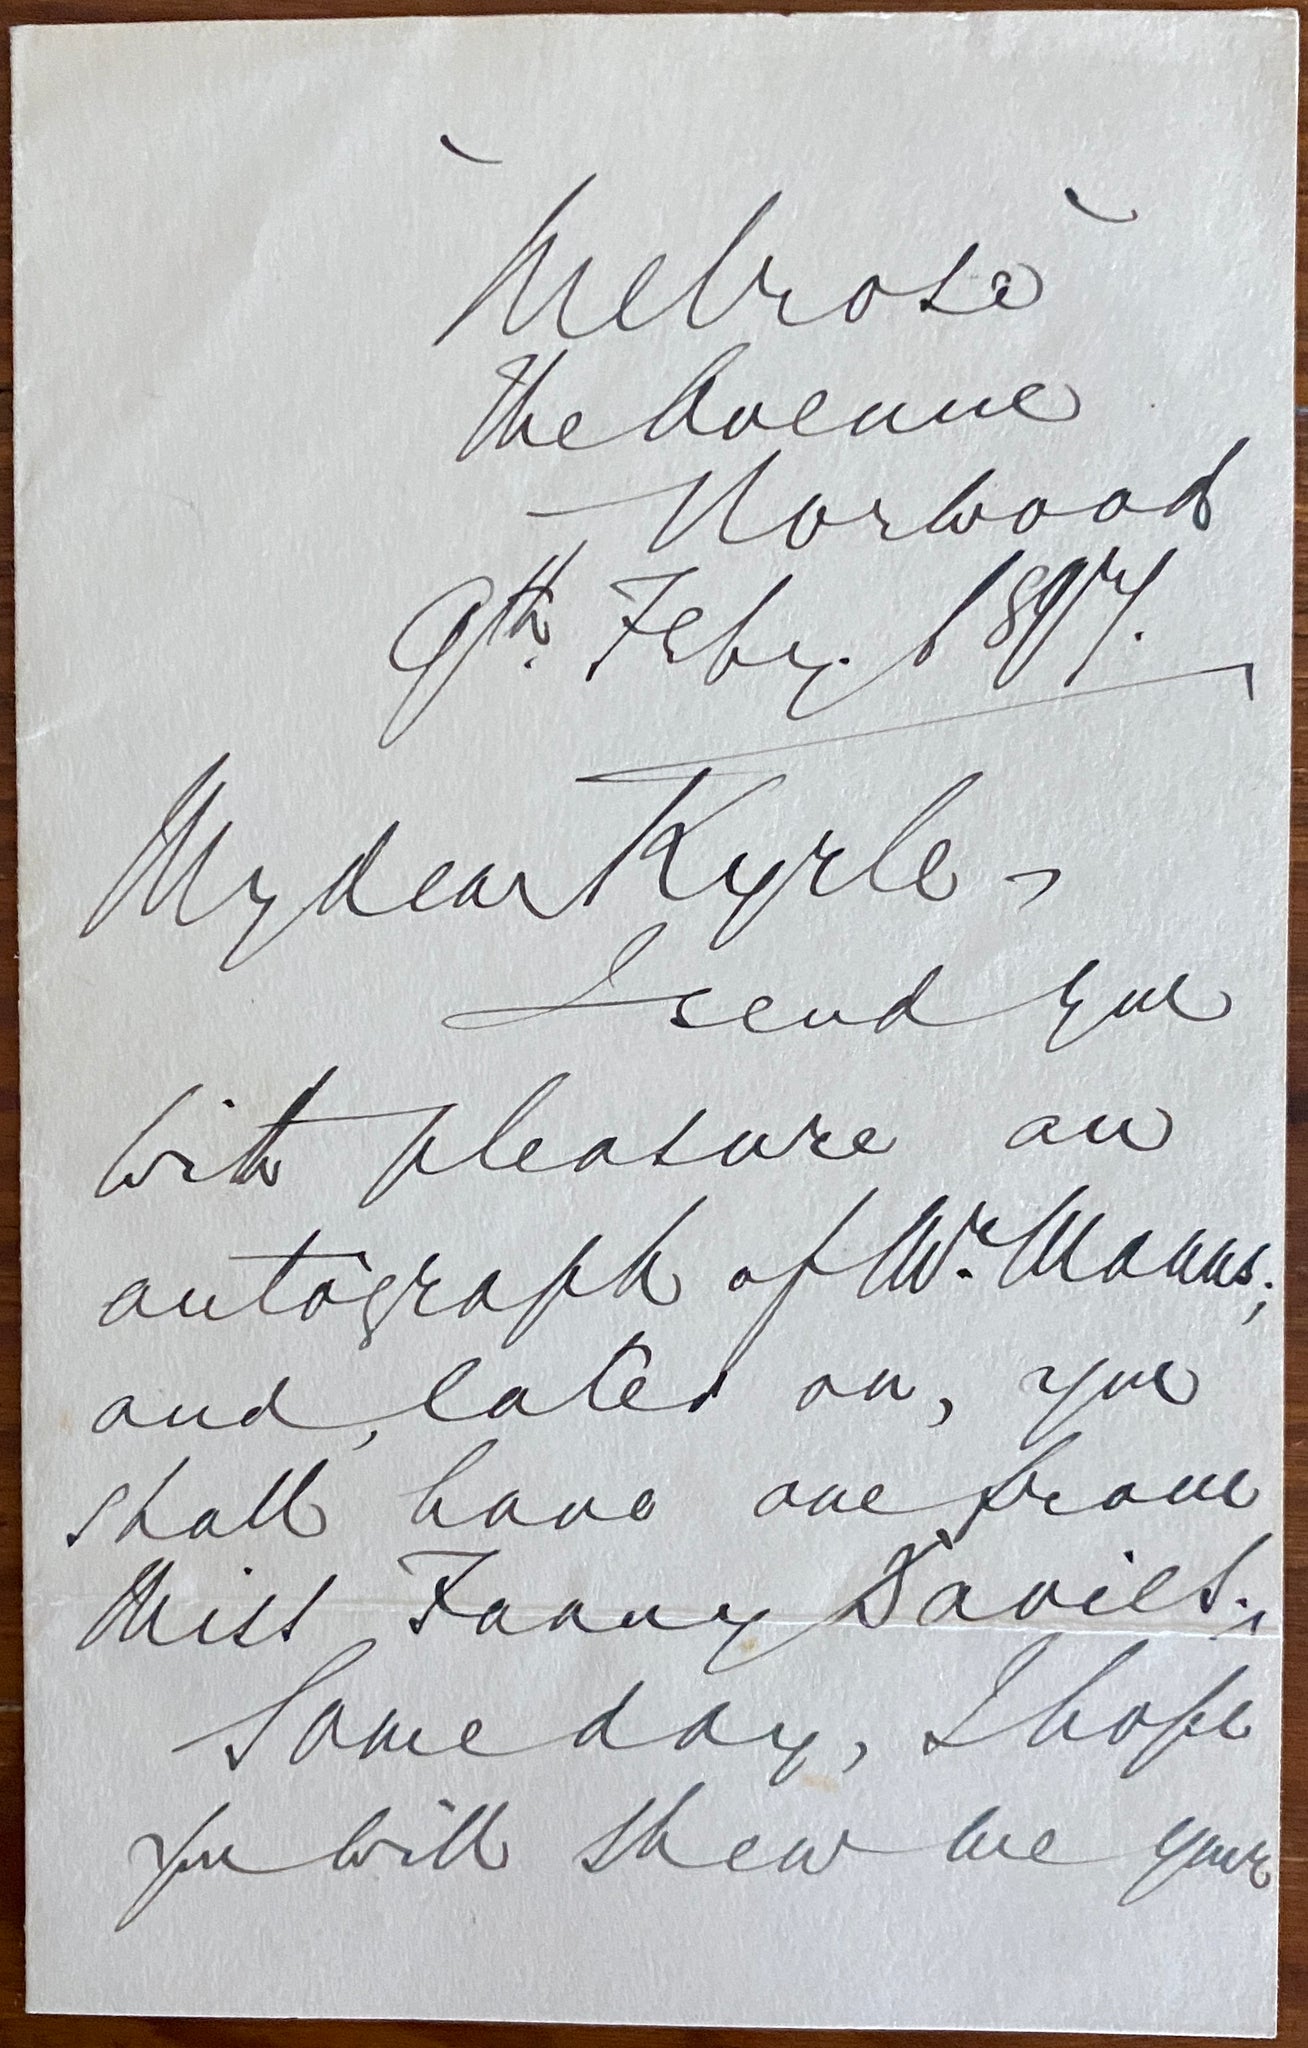 "Melrose"
The Avenue
Norwood
9th. Feby. 1897.
My dear Kyrle,
I send you
with pleasure an
autograph of Mr. Manns;
and, later on, you
shall have one from
Miss Fanny Davies.
Some day, I hope
you will shew me your